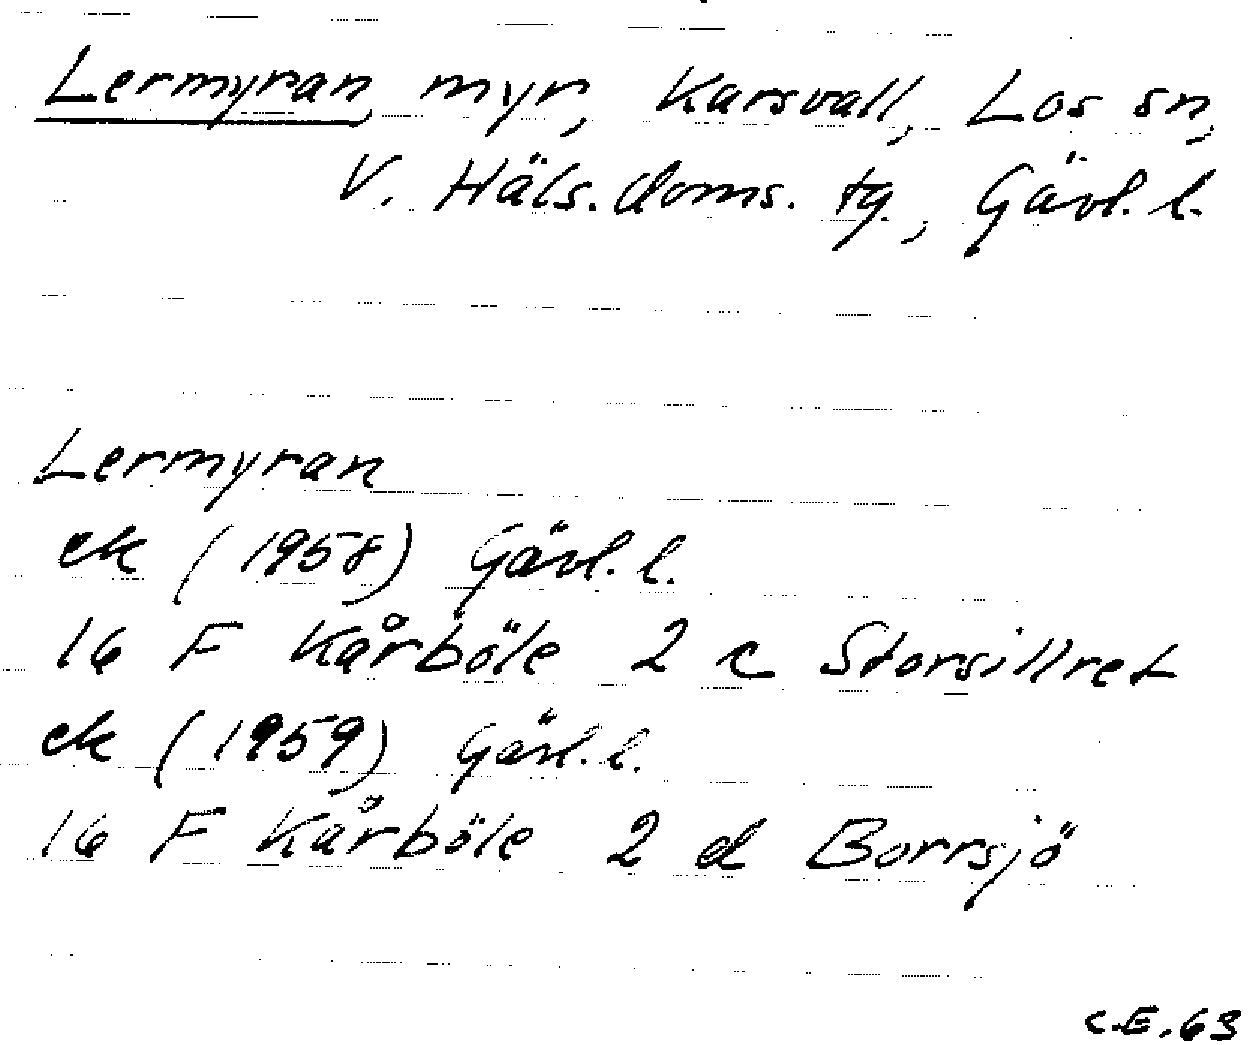 Lermyran, myr, Karsvall, Los sn,
V. Häls. doms. tg., Gävl. l.
Lermyran
ek (1958) Gävl. l.
16 F Kårböle 2 c Storsillret
ek (1959) Gävl. l.
16 F Kårböle 2 d Borrsjö
C.E. 63